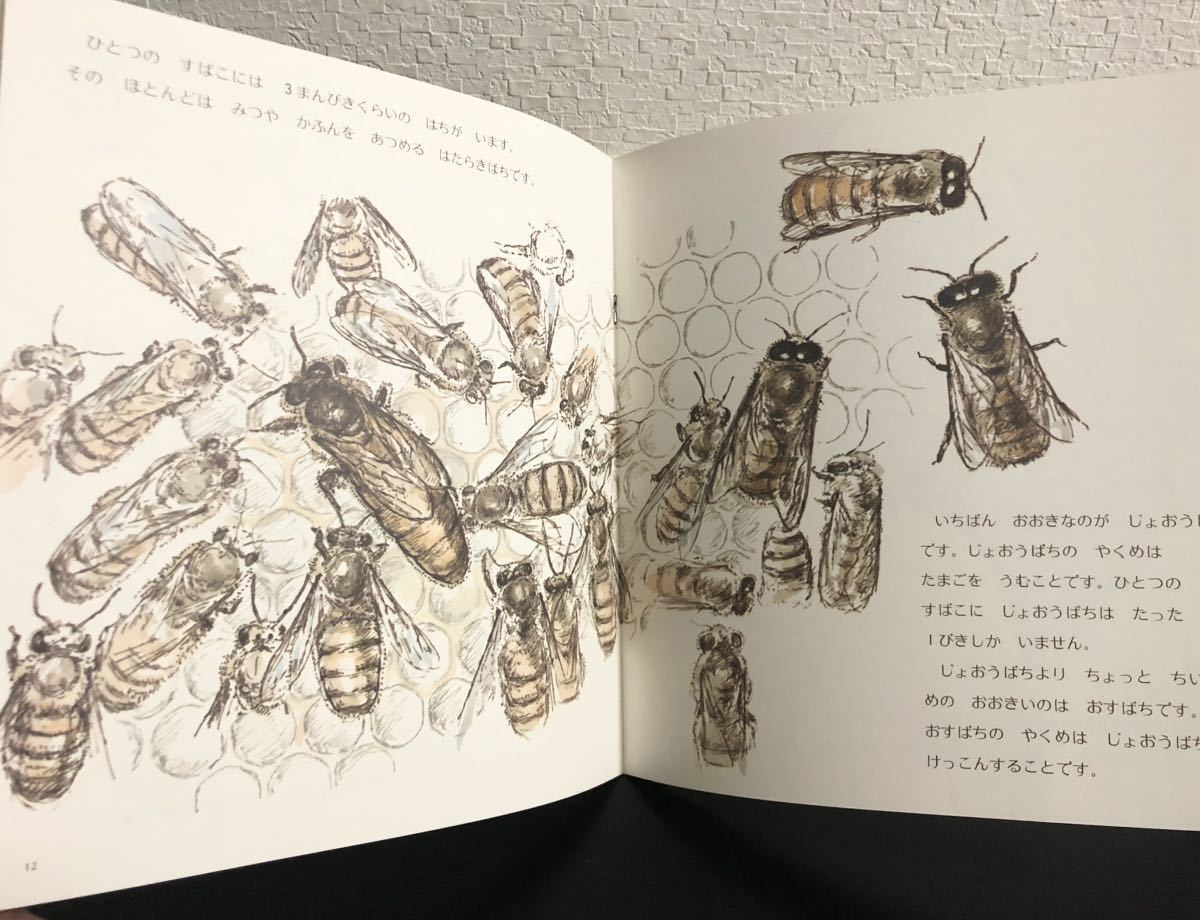 ひとつの　すばこには　3まんびきくらいの　はちが　います。
その　ほとんどは　みつや　かふんを　あつめる　はたらきばちです。
いちばん　おおきなのが　じょおう
です。じょおうばちの　やくめは
たまごを　うむことです。ひとつの
すばこに　じょおうばちは　たった
1ぴきしか　いません。
じょおうばちより　ちょっと　ちい
めの　おおきいのは　おすばちです。
おすばちの　やくめは　じょおうばち
けっこんすることです。
12